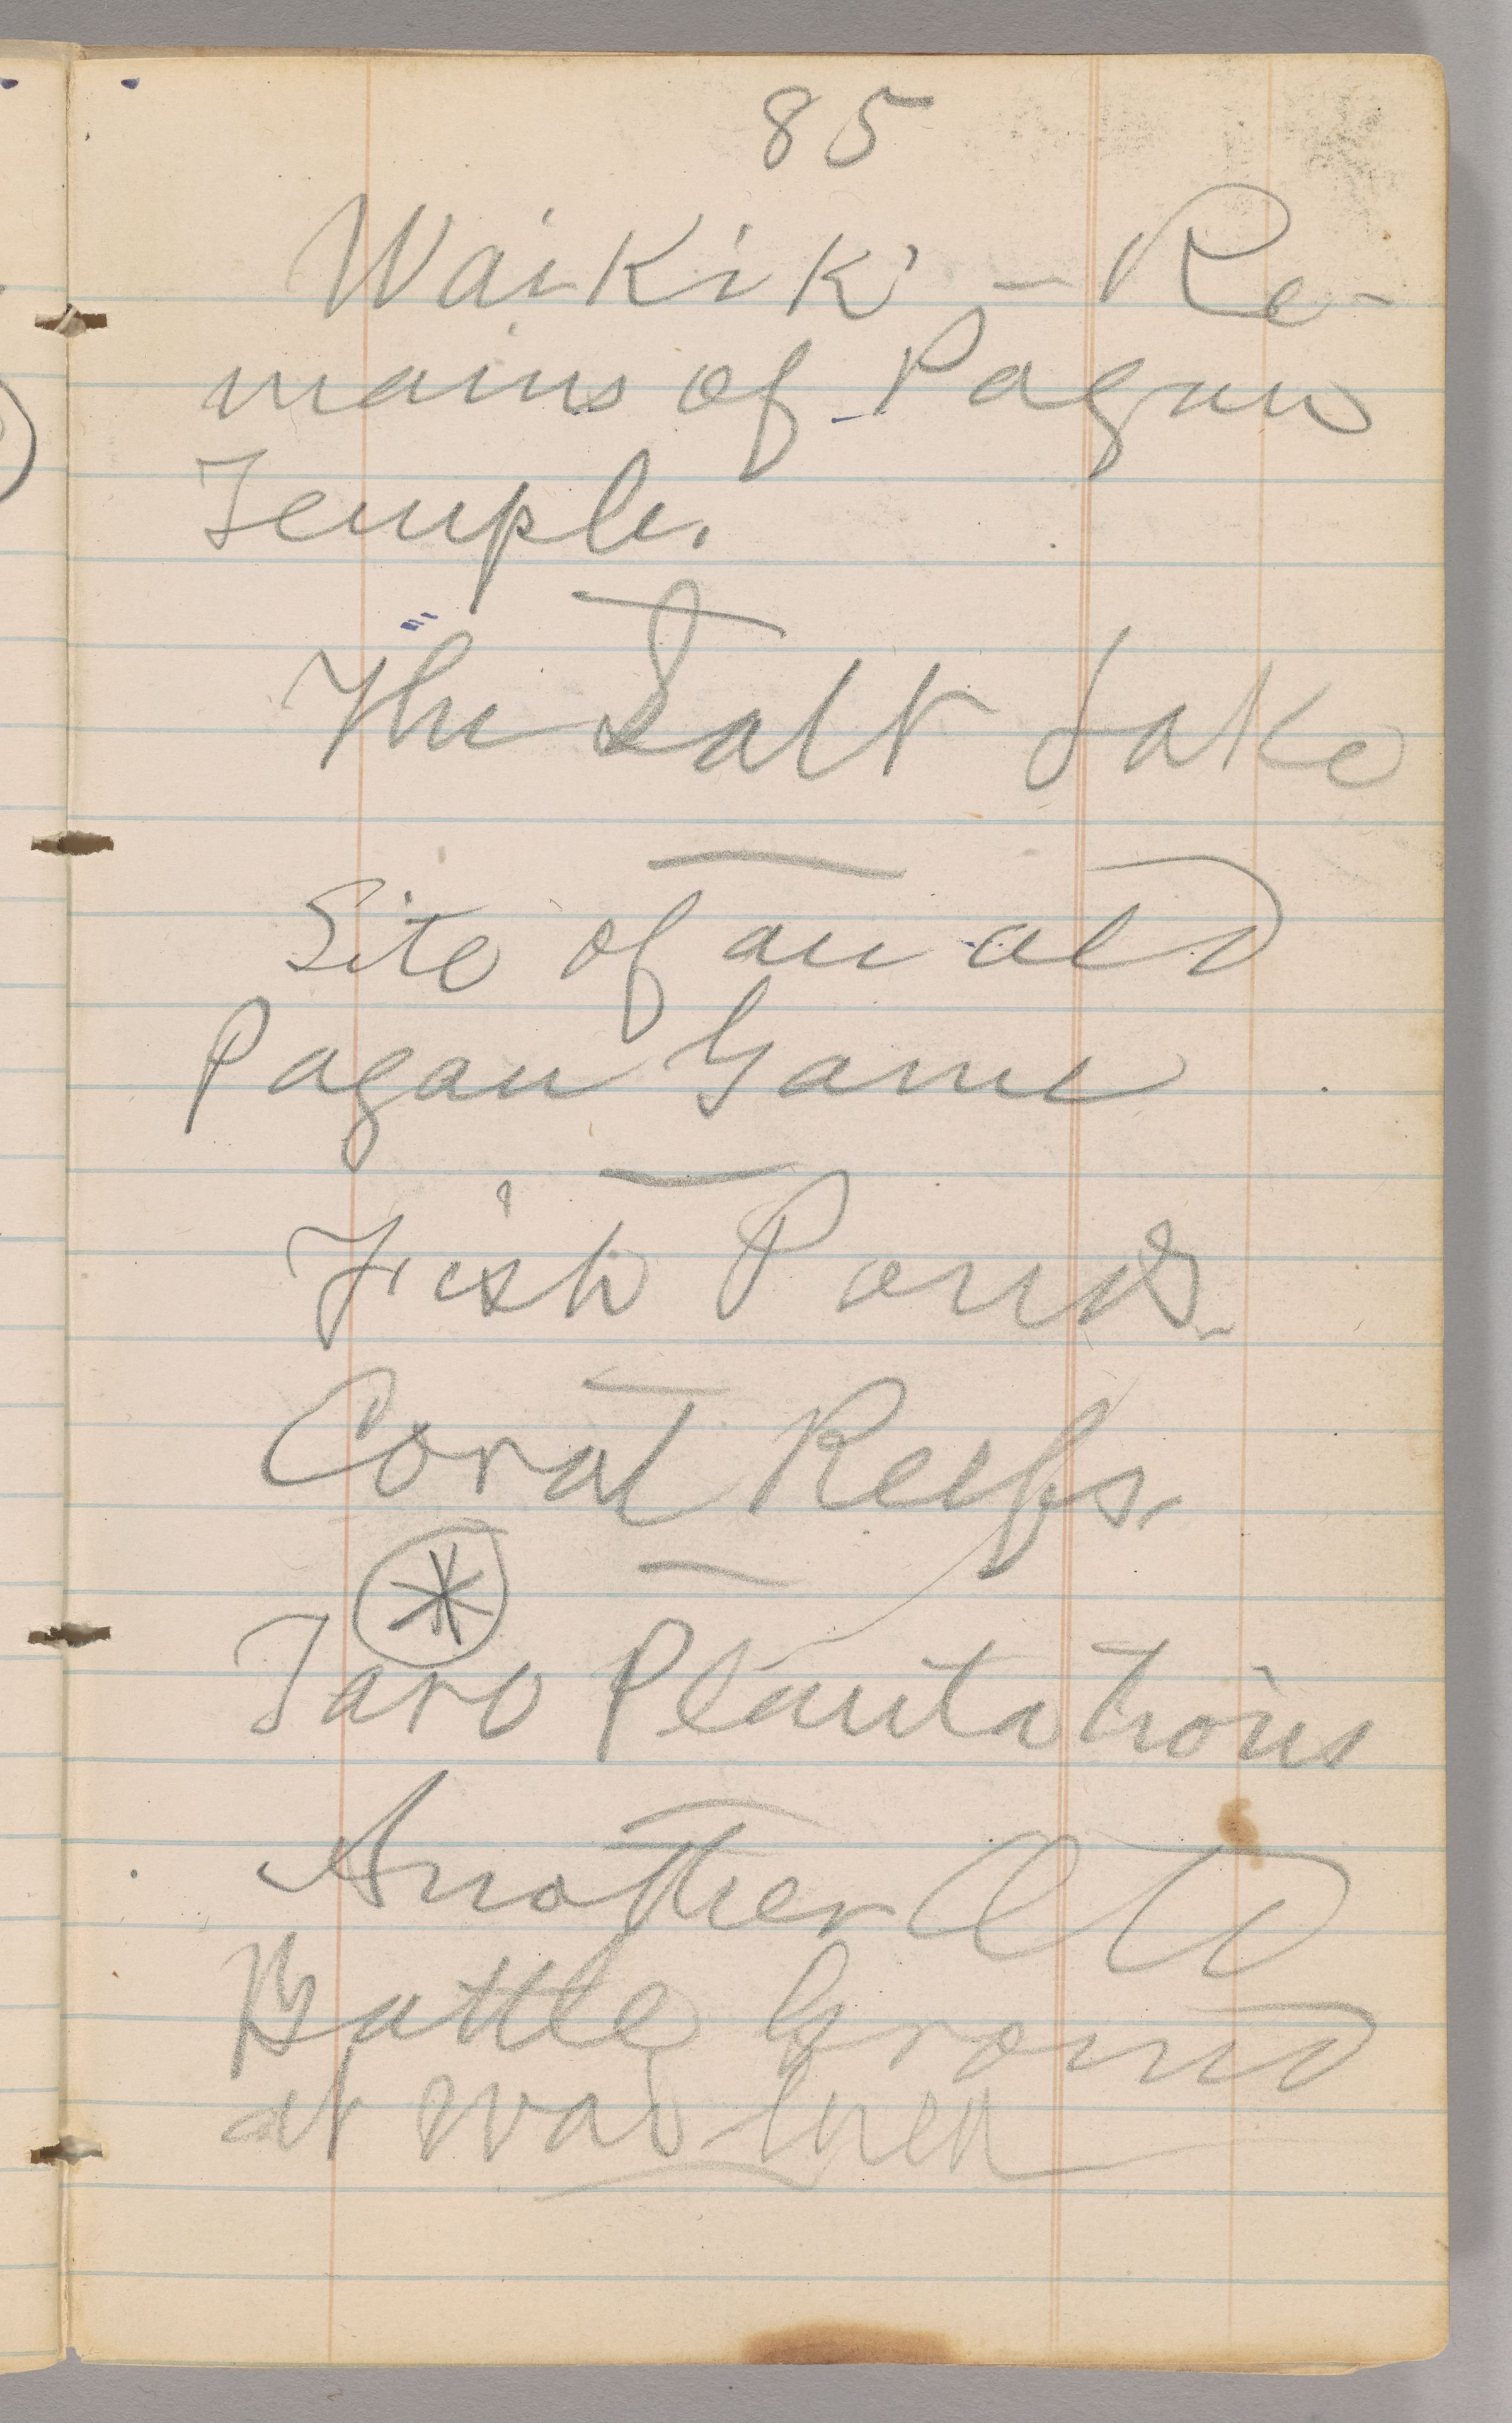 85
Waikiki - Re-
mains of Pagan
Temple.
The Salt Lake
Site of an old
Pagan Game
Fish Ponds.
Coral Reefs.
*
Taro Plantations
Another Old
Battle Ground
at